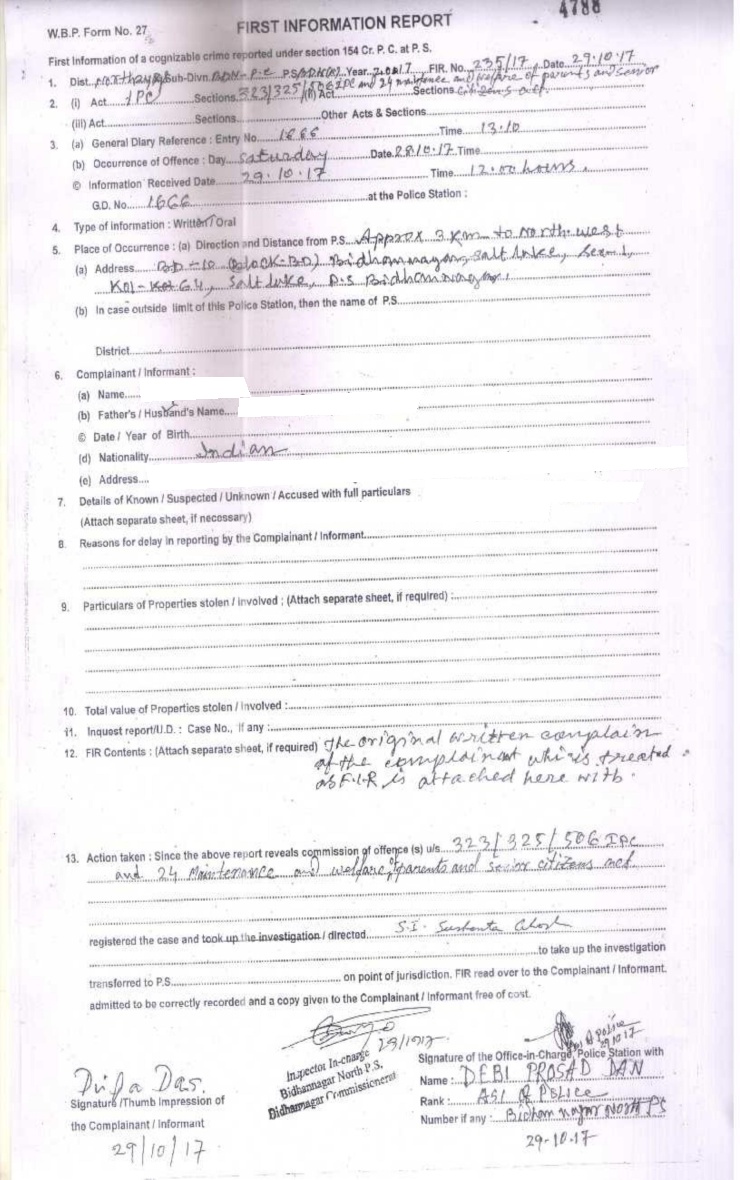 4788
W.B.P. Form No. 27
FIRST INFORMATION REPORT
First Information of a cognizable crime reported under section 154 Cr. P. C. at P. S.
1. Dist. Sub-Divn. P.S. Year 2017 FIR. No. 235/17 Date 29.10.17
2. (i) Act IPC Sections 323/325/506 IPC and 24 maintenance and welfare of parents and senior
(ii) Act Sections citizens act.
(iii) Act Sections Other Acts & Sections
3. (a) General Diary Reference : Entry No. 1666 Time 13.10
(b) Occurrence of Offence : Day Saturday Date 28.10.17 Time
© Information Received Date 29.10.17 Time 12.00 hours.
G.D. No. 1666 at the Police Station :
4. Type of information : Written / Oral
5. Place of Occurrence : (a) Direction and Distance from P.S. Approx 3 Km to North-west
(a) Address BD- (Block-BD) Bidhannagar, Salt Lake, Sec-1,
Kol- 64, Salt Lake, P.S Bidhannagar,
(b) In case outside limit of this Police Station, then the name of P.S.
District
6. Complainant / Informant :
(a) Name
(b) Father's / Husband's Name
© Date / Year of Birth
(d) Nationality Indian
(e) Address
7. Details of Known / Suspected / Unknown / Accused with full particulars
(Attach separate sheet, if necessary)
8. Reasons for delay in reporting by the Complainant / Informant
9. Particulars of Properties stolen / involved : (Attach separate sheet, if required) :
10. Total value of Properties stolen / involved :
11. Inquest report/U.D. : Case No., if any :
12. FIR Contents : (Attach separate sheet, if required) The original written complain
of the complainant which is treated
as F.I.R is attached here with.
13. Action taken : Since the above report reveals commission of offence (s) u/s 323/325/506 IPC
and 24 Maintenance and welfare of parents and senior citizens act
registered the case and took up the investigation / directed S.I. Sushanta Ghosh
to take up the investigation
transferred to P.S. on point of jurisdiction. FIR read over to the Complainant / Informant.
admitted to be correctly recorded and a copy given to the Complainant / Informant free of cost.
29/10/17
Inspector In-charge
Bidhannagar North P.S.
Bidhannagar Commissionerat
ASI of Police
29.10.17
Signature of the Office-in-Charge, Police Station with
Name : DEBI PROSAD DAN
Rank : ASI of Police
Number if any : Bidhannagar North PS
29-10-17
Dipa Das.
Signature/Thumb Impression of
the Complainant / Informant
29/10/17